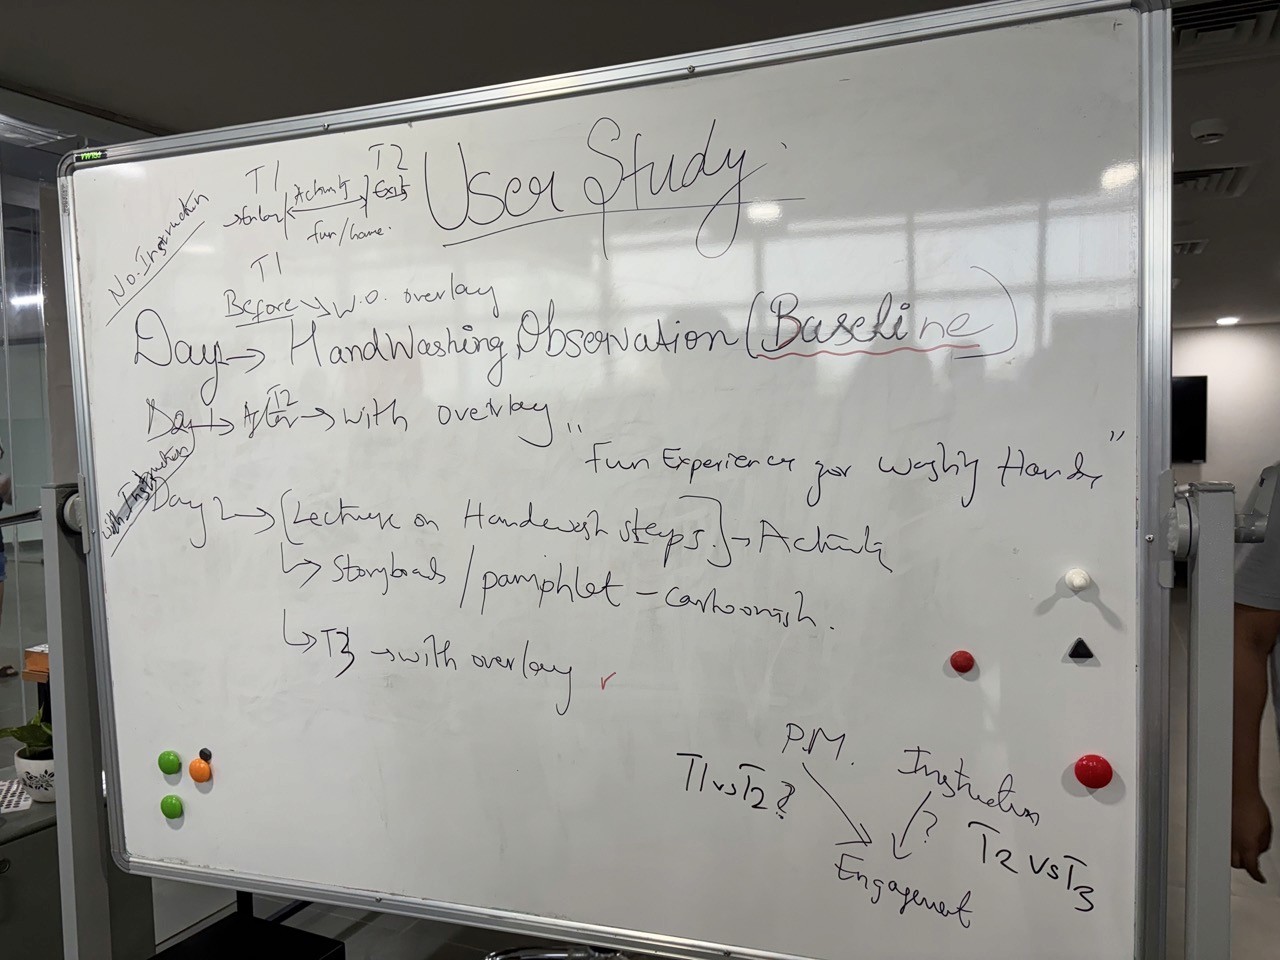 User Study.
No. Instruction
T1 T2
→ Enter Activity Exits
fun/game.
T1
Before → w.o. overlay
Day → HandWashing Observation (Baseline)
Day 1 → After T2 → with overlay
"Fun Experience for Washing Hands"
with Instruction
Day 2 → [Lecture on Handwash steps.] → Activity
↳ Storyboards / pamphlet - cartoonish.
↳ T3 → with overlay ✓
P.M. Instruction
T1 vs T2? ? T2 vs T3
Engagement